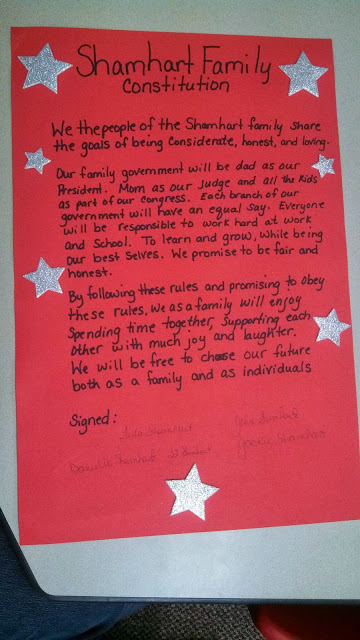 Shamhart Family
Constitution
We the people of the Shamhart family share
the goals of being Considerate, honest, and loving.
Our family government will be dad as our
President. Mom as our Judge and all the Kids
as part of our Congress. Each branch of our
government will have an equal say. Everyone
will be responsible to work hard at work
and School. To learn and grow, while being
our best selves. We promise to be fair and
honest.
By following these rules and promising to obey
these rules, we as a family will enjoy
Spending time together, Supporting each
Other with much joy and laughter.
We will be free to chose our future
both as a family and as individuals
Signed: